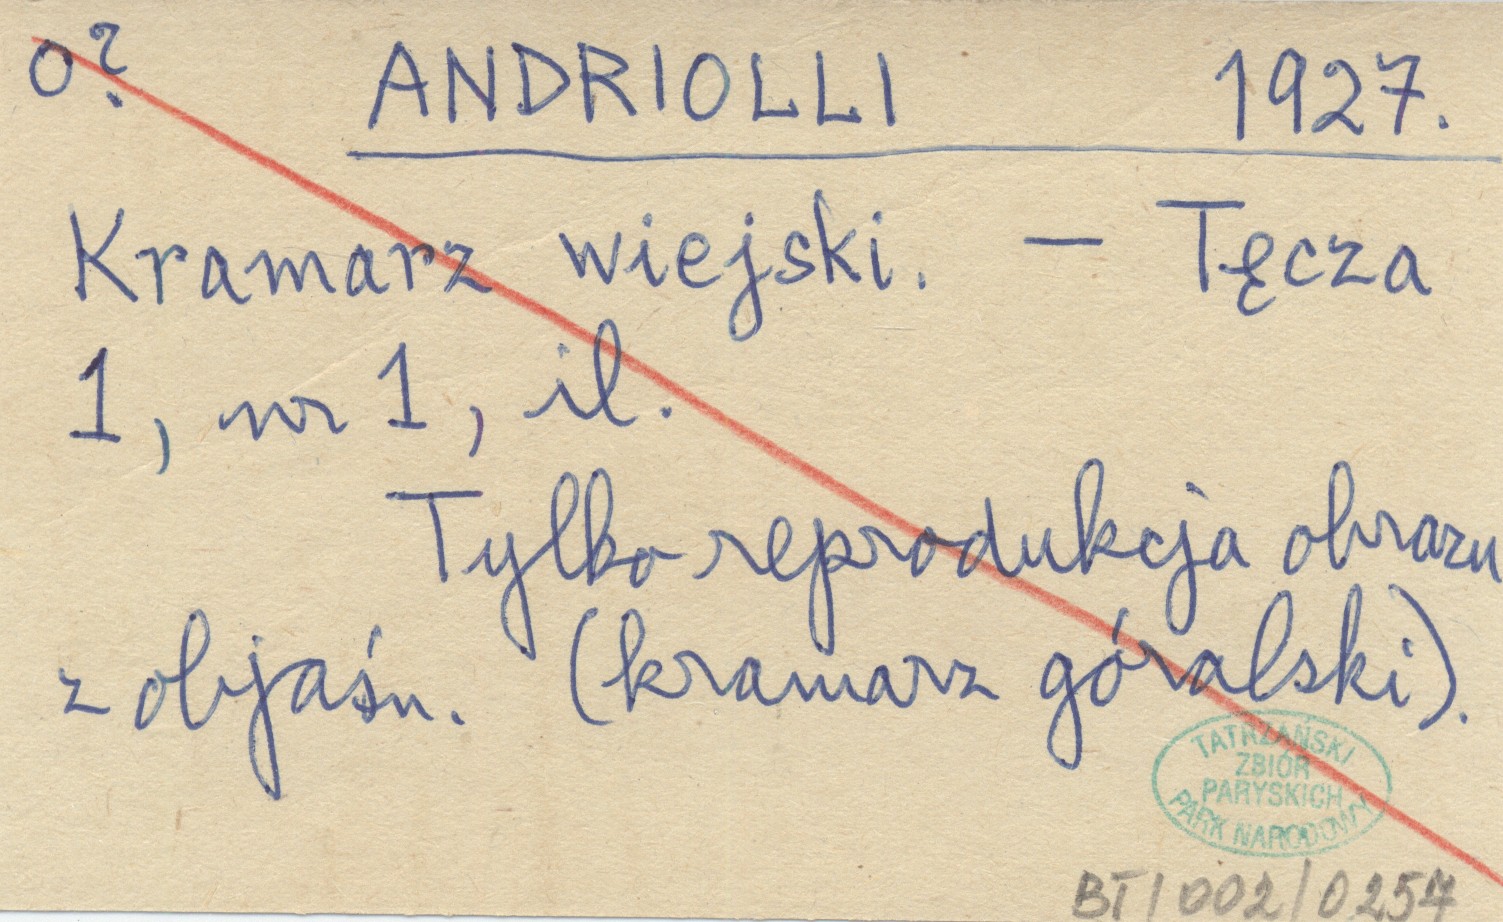 o? ANDRIOLLI 1927.
Kramarz wiejski. — Tęcza
1, nr 1, il.
Tylko reprodukcja obrazu
z objaśn. (kramarz góralski).
TATRZAŃSKI
ZBIÓR
PARYSKICH
PARK NARODOWY
BT/002/0257